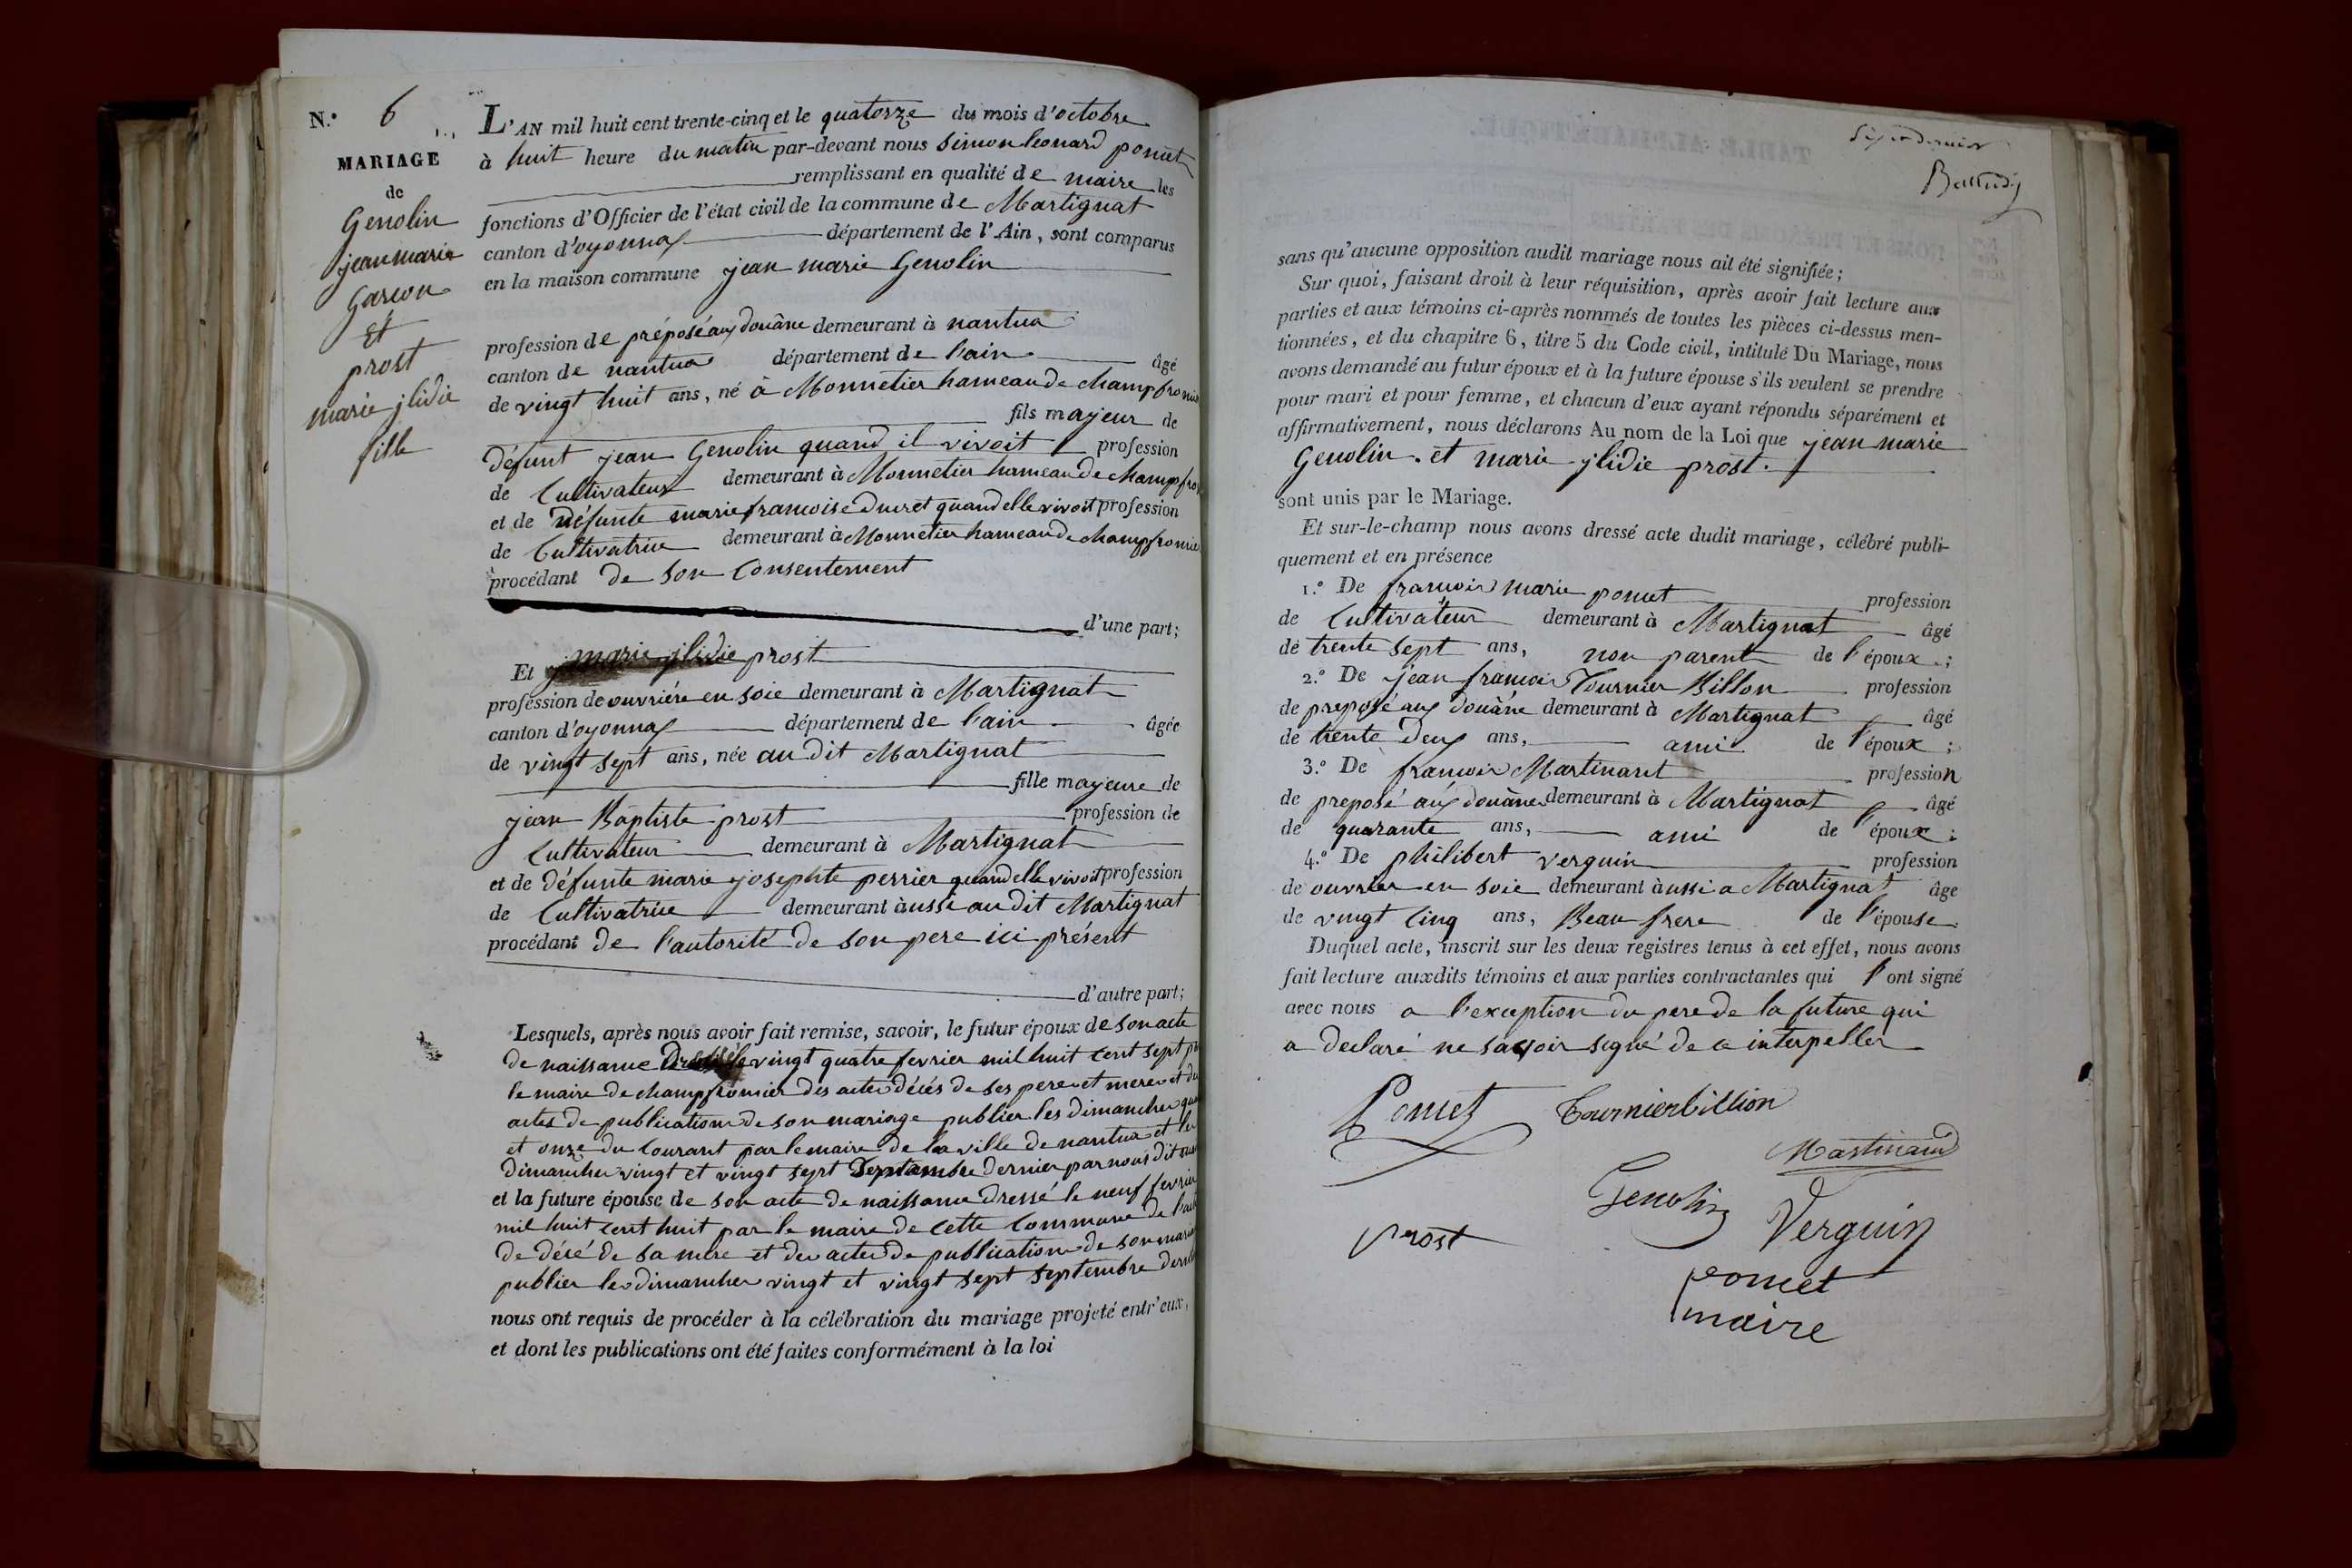 N.° 6
MARIAGE
de
Genolin
jean marie
Garcon
Et
prost
marie jlidie
fille
L'AN mil huit cent trente-cinq et le quatorze du mois d'octobre
à huit heure du matin par-devant nous simon leonard pomet
remplissant en qualité de maire les
fonctions d'Officier de l'état civil de la commune de Martignat
canton d'oyonnax département de l'Ain, sont comparus
en la maison commune jean marie Genolin
profession de préposé aux douâne demeurant à nantua
canton de nantua département de l'ain âgé
de vingt huit ans, né à Monnetier hameau de champfromier
fils majeur de
défunt jean Genolin quand il vivoit profession
de Cultivateur demeurant à Monnetier hameau de champfro
et de défunte marie francoise ducret quand elle vivoit profession
de Cultivatrice demeurant à Monnetier hameau de champfromier
procédant de son Consentement
d'une part;
Et marie jlidie prost
profession de ouvriére en soie demeurant à Martignat
canton d'oyonnax département de l'ain âgée
de vingt sept ans, née au dit Martignat
fille majeure de
jean Baptiste prost profession de
Cultivateur demeurant à Martignat
et de défunte marie josephte perrier quand elle vivoit profession
de Cultivatrice demeurant àussi au dit Martignat
procédant de l'autorité de son pere ici présent
d'autre part;
Lesquels, après nous avoir fait remise, savoir, le futur époux de son acte
de naissance vingt quatre fevrier mil huit cent sept
le maire de champfromier des actes décés de ses pere et mere et de
actes de publication de son mariage publier les dimanches
et onze du Courant par le maire de la ville de nantua et les
dimanches vingt et vingt sept Septembre dernier par nous dit
et la future épouse de son acte de naissance dressé le neuf fevrier
mil huit cent huit par le maire de cette Commune de
de décé de sa mere et des actes de publication de son
publier les dimanches vingt et vingt sept septembre
nous ont requis de procéder à la célébration du mariage projeté entr'eux,
et dont les publications ont été faites conformément à la loi
sans qu'aucune opposition audit mariage nous ait été signifiée;
Sur quoi, faisant droit à leur réquisition, après avoir fait lecture aux
parties et aux témoins ci-après nommés de toutes les pièces ci-dessus men-
tionnées, et du chapitre 6, titre 5 du Code civil, intitulé Du Mariage, nous
avons demandé au futur époux et à la future épouse s'ils veulent se prendre
pour mari et pour femme, et chacun d'eux ayant répondu séparément et
affirmativement, nous déclarons Au nom de la Loi que jean marie
Genolin. et marie jlidie prost.
sont unis par le Mariage.
Et sur-le-champ nous avons dressé acte dudit mariage, célébré publi-
quement et en présence
1.° De francois marie pomet profession
de Cultivateur demeurant à Martignat âgé
de trente sept ans, non parent de l'époux;
2.° De jean francois Tournier Billon profession
de preposé aux douâne demeurant à Martignat âgé
de trente deux ans, ami de l'époux;
3.° De francois Martinaret profession
de preposé aux douânes demeurant à Martignat âgé
de quarante ans, ami de l'époux;
4.° De philibert verguin profession
de ouvrier en soie demeurant àussi a Martignat âgé
de vingt Cinq ans, Beau frere de l'épouse
Duquel acte, inscrit sur les deux registres tenus à cet effet, nous avons
fait lecture auxdits témoins et aux parties contractantes qui l'ont signé
avec nous a l'exception du pere de la future qui
a declaré ne savoir signé de ce interpeller
Pomet Tournierbillion
Genolin Verguin
Prost
pomet
maire